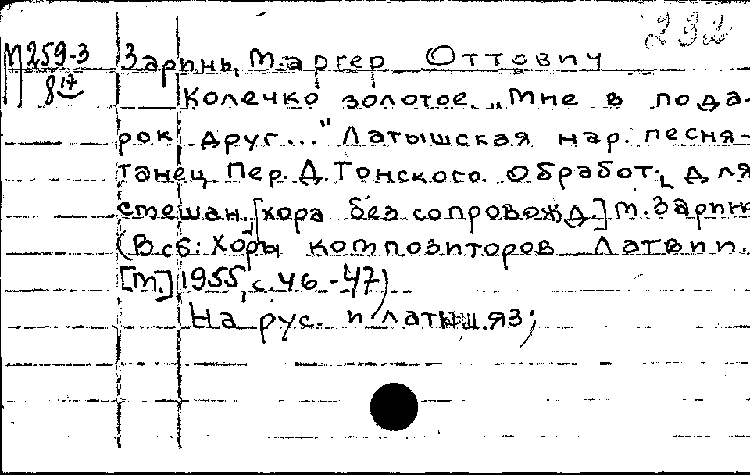 232
П259-3 Заринь, М.аргер Оттович
8 17 Колечко золотое. „Мне в пода-
рок друг..." Латышская нар. песня-
танец Пер. Д. Тонского. Обработ. для
смешан. [хора без сопровожд.] М. Заринь
(В сб: Хоры композиторов Латвии.
[М.] 1955, с 46-47)
На рус. и латыш. яз;